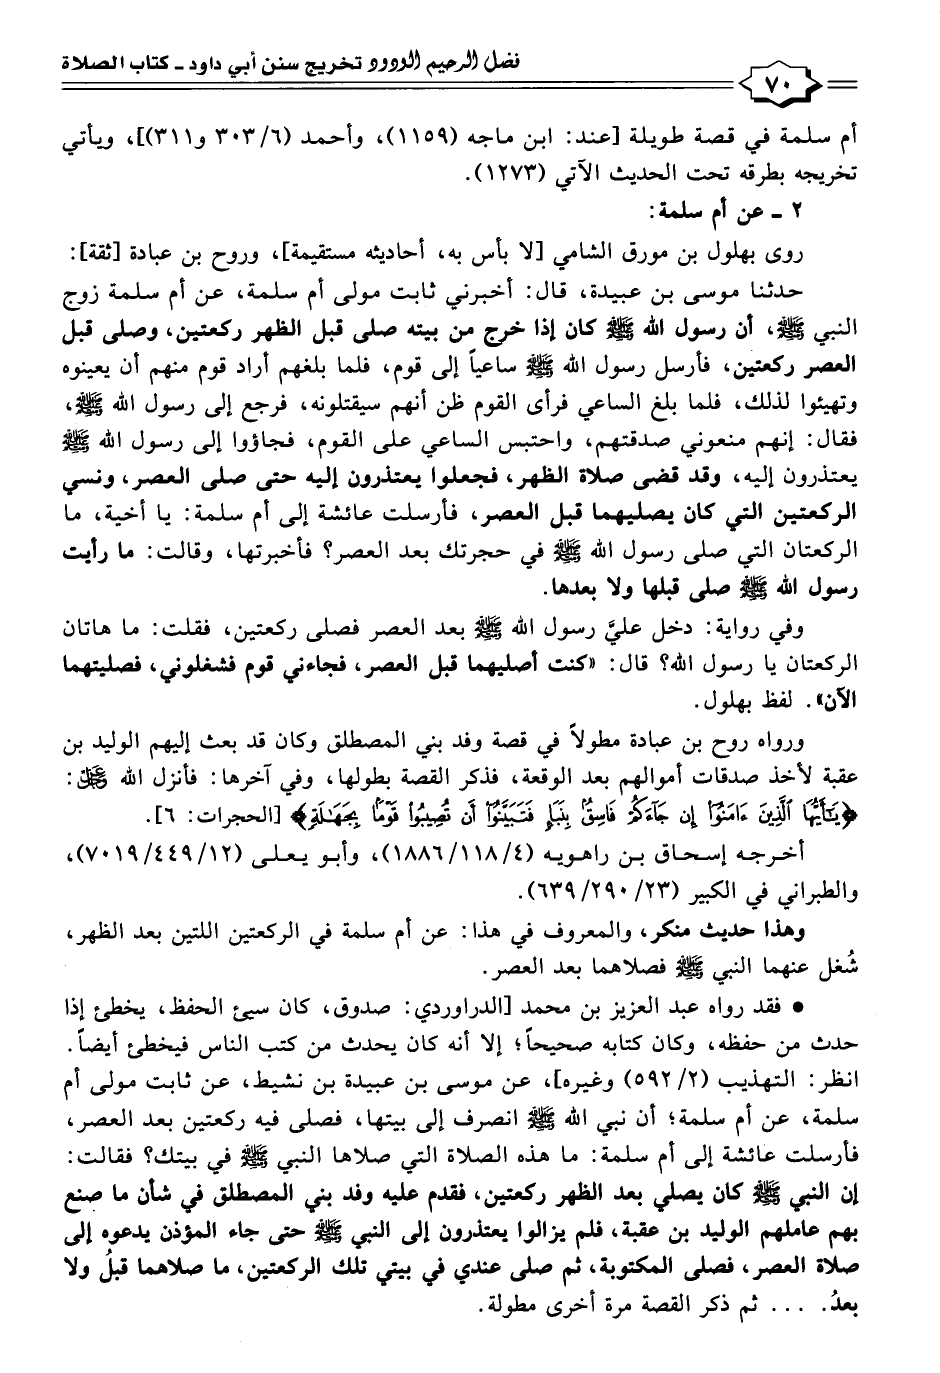 فضل الرحيم الودود تخريج سنن أبي داود - كتاب الصلاة
٧٠
أم سلمة في قصة طويلة [عند: ابن ماجه (١١٥٩)، وأحمد (٦/ ٣٠٣ و٣١١)]، ويأتي
تخريجه بطرقه تحت الحديث الآتي (١٢٧٣).
٢ - عن أم سلمة:
روى بهلول بن مورق الشامي [لا بأس به، أحاديثه مستقيمة]، وروح بن عبادة [ثقة]:
حدثنا موسى بن عبيدة، قال: أخبرني ثابت مولى أم سلمة، عن أم سلمة زوج
النبي ﷺ، أن رسول الله ﷺ كان إذا خرج من بيته صلى قبل الظهر ركعتين، وصلى قبل
العصر ركعتين، فأرسل رسول الله ﷺ ساعياً إلى قوم، فلما بلغهم أراد قوم منهم أن يعينوه
وتهيئوا لذلك، فلما بلغ الساعي فرأى القوم ظن أنهم سيقتلونه، فرجع إلى رسول الله ﷺ،
فقال: إنهم منعوني صدقتهم، واحتبس الساعي على القوم، فجاؤوا إلى رسول الله ﷺ
يعتذرون إليه، وقد قضى صلاة الظهر، فجعلوا يعتذرون إليه حتى صلى العصر، ونسي
الركعتين التي كان يصليهما قبل العصر، فأرسلت عائشة إلى أم سلمة: يا أخية، ما
الركعتان التي صلى رسول الله ﷺ في حجرتك بعد العصر؟ فأخبرتها، وقالت: ما رأيت
رسول الله ﷺ صلى قبلها ولا بعدها.
وفي رواية: دخل عليَّ رسول الله ﷺ بعد العصر فصلى ركعتين، فقلت: ما هاتان
الركعتان يا رسول الله؟ قال: «كنت أصليهما قبل العصر، فجاءني قوم فشغلوني، فصليتهما
الآن». لفظ بهلول.
ورواه روح بن عبادة مطولاً في قصة وفد بني المصطلق وكان قد بعث إليهم الوليد بن
عقبة لأخذ صدقات أموالهم بعد الوقعة، فذكر القصة بطولها، وفي آخرها: فأنزل الله ﷻ:
﴿يَٰٓأَيُّهَا ٱلَّذِينَ ءَامَنُوٓا۟ إِن جَآءَكُمْ فَاسِقٌۢ بِنَبَإٍ فَتَبَيَّنُوٓا۟ أَن تُصِيبُوا۟ قَوْمًۢا بِجَهَٰلَةٍ﴾ [الحجرات: ٦].
أخرجه إسحاق بن راهويه (٤/ ١١٨/ ١٨٨٦)، وأبو يعلى (١٢/ ٤٤٩/ ٧٠١٩)،
والطبراني في الكبير (٢٣/ ٢٩٠/ ٦٣٩).
وهذا حديث منكر، والمعروف في هذا: عن أم سلمة في الركعتين اللتين بعد الظهر،
شُغل عنهما النبي ﷺ فصلاهما بعد العصر.
• فقد رواه عبد العزيز بن محمد [الدراوردي: صدوق، كان سيئ الحفظ، يخطئ إذا
حدث من حفظه، وكان كتابه صحيحاً؛ إلا أنه كان يحدث من كتب الناس فيخطئ أيضاً.
انظر: التهذيب (٢/ ٥٩٢) وغيره]، عن موسى بن عبيدة بن نشيط، عن ثابت مولى أم
سلمة، عن أم سلمة؛ أن نبي الله ﷺ انصرف إلى بيتها، فصلى فيه ركعتين بعد العصر،
فأرسلت عائشة إلى أم سلمة: ما هذه الصلاة التي صلاها النبي ﷺ في بيتك؟ فقالت:
إن النبي ﷺ كان يصلي بعد الظهر ركعتين، فقدم عليه وفد بني المصطلق في شأن ما صنع
بهم عاملهم الوليد بن عقبة، فلم يزالوا يعتذرون إلى النبي ﷺ حتى جاء المؤذن يدعوه إلى
صلاة العصر، فصلى المكتوبة، ثم صلى عندي في بيتي تلك الركعتين، ما صلاهما قبلُ ولا
بعدُ. ... ثم ذكر القصة مرة أخرى مطولة.